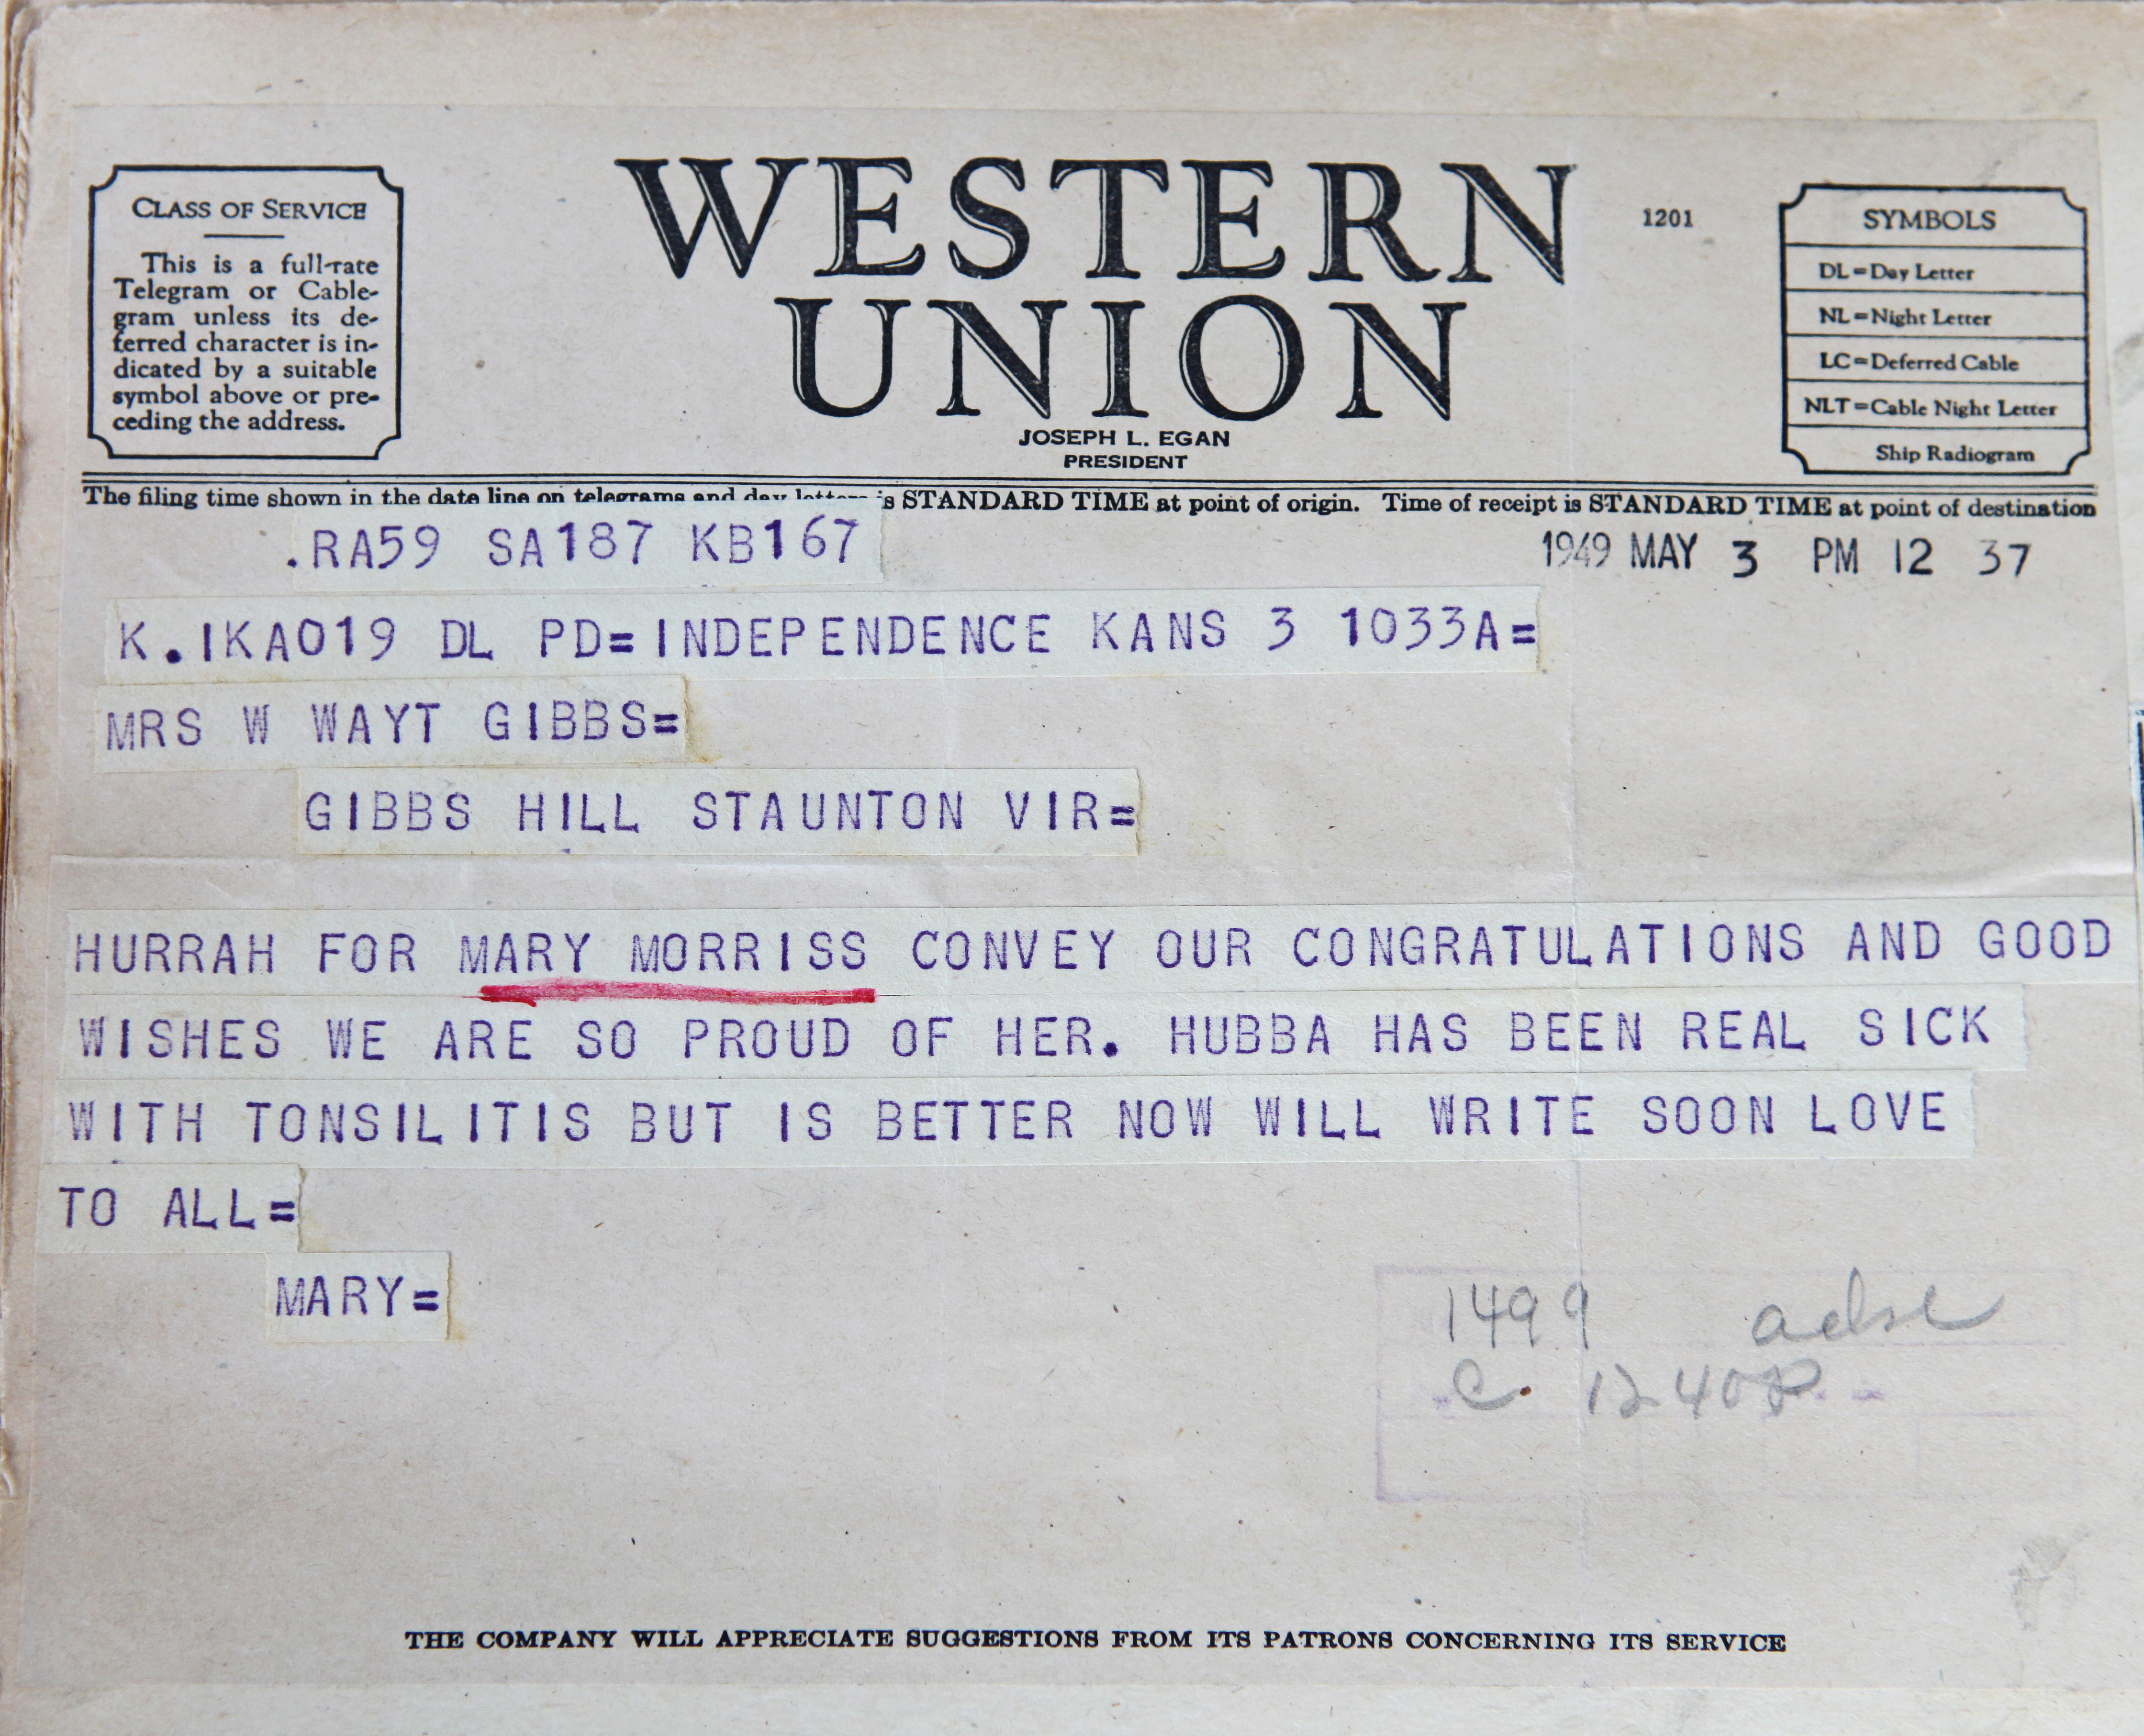 CLASS OF SERVICE
This is a full-rate
Telegram or Cable-
gram unless its de-
ferred character is in-
dicated by a suitable
symbol above or pre-
ceding the address.
WESTERN
UNION
JOSEPH L. EGAN
PRESIDENT
1201
SYMBOLS
DL=Day Letter
NL=Night Letter
LC=Deferred Cable
NLT=Cable Night Letter
Ship Radiogram
The filing time shown in the date line on telegrams and day letters is STANDARD TIME at point of origin. Time of receipt is STANDARD TIME at point of destination
.RA59 SA187 KB167
1949 MAY 3 PM 12 37
K.IKA019 DL PD=INDEPENDENCE KANS 3 1033A=
MRS W WAYT GIBBS=
GIBBS HILL STAUNTON VIR=
HURRAH FOR MARY MORRISS CONVEY OUR CONGRATULATIONS AND GOOD
WISHES WE ARE SO PROUD OF HER. HUBBA HAS BEEN REAL SICK
WITH TONSILITIS BUT IS BETTER NOW WILL WRITE SOON LOVE
TO ALL=
MARY=
1499
C. 1240P
THE COMPANY WILL APPRECIATE SUGGESTIONS FROM ITS PATRONS CONCERNING ITS SERVICE